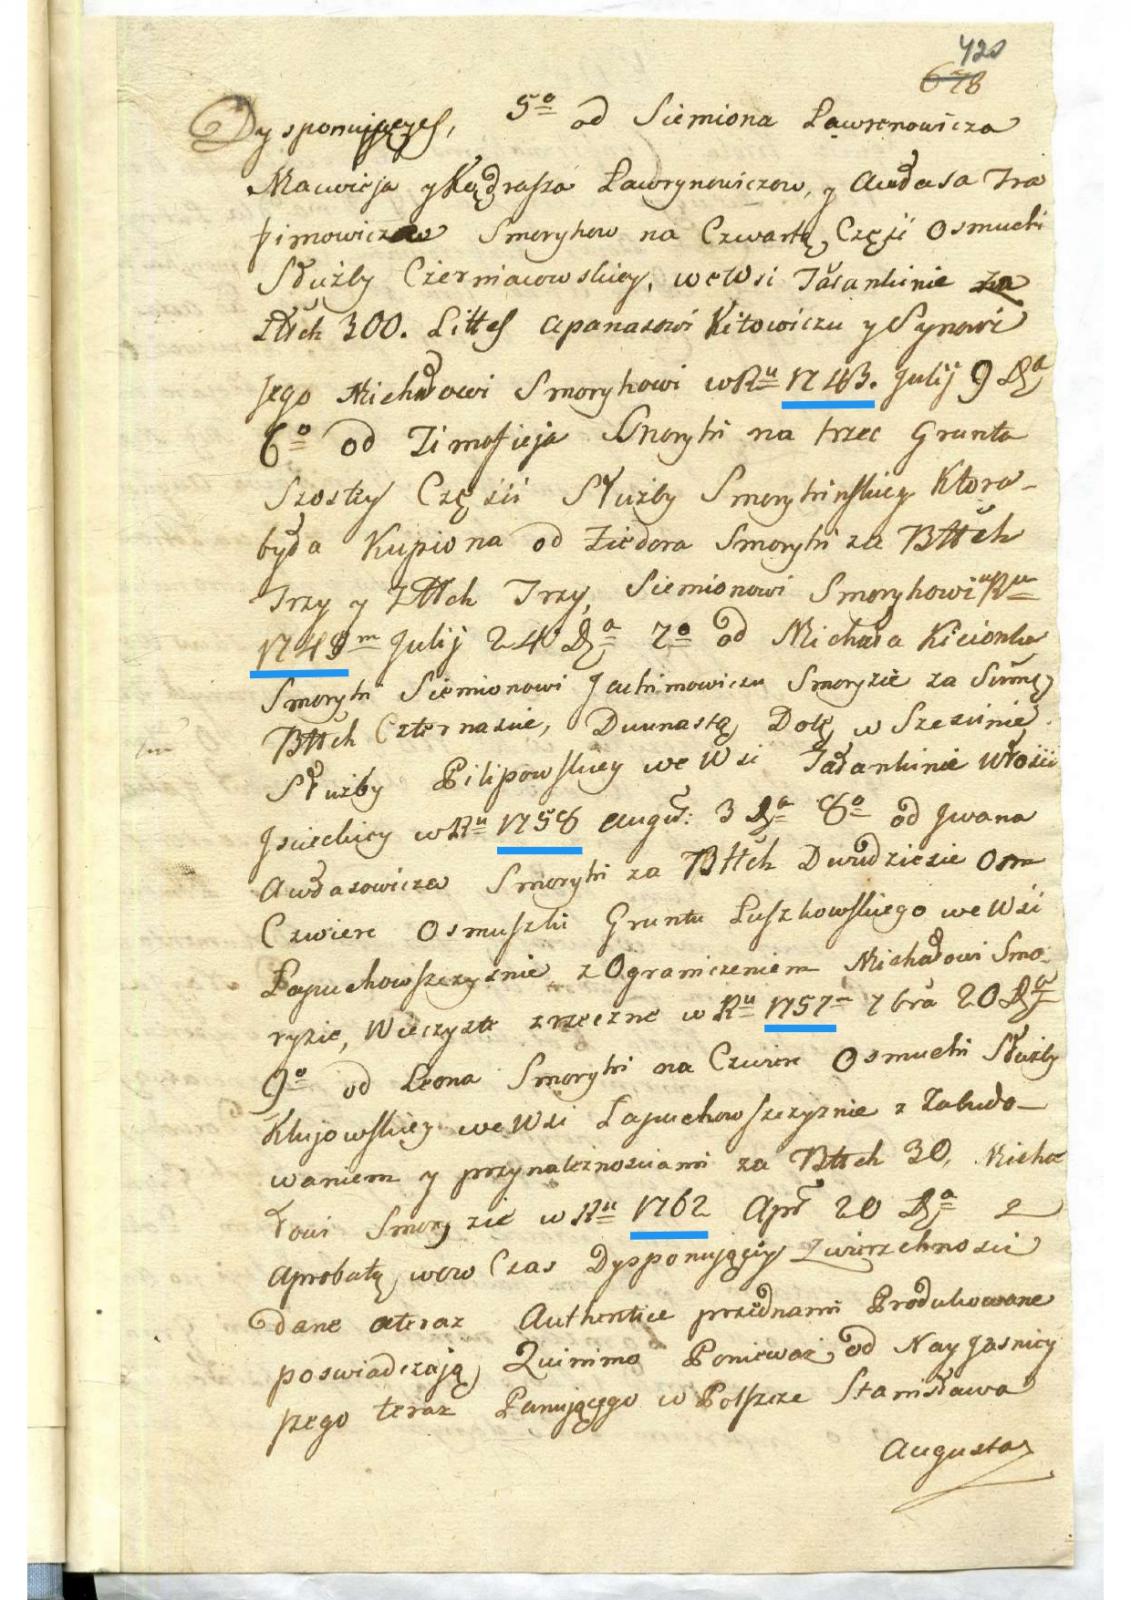 420
678
Dysponującey, 5o od Siemiona Ławrenowicza
Maucieja y Kądrasza Ławrynowiczow, y Audasa Tra
fimowiczow Smorykow na Czwartą Części Osmuchi
Służby Czerniacowskiey, we Wsi Jałankinie za
Złłch 300. Littel Apanasowi Kitowiczu y Synowi
Jego Michałowi Smorykowi w Ru 1743. Julij 9 Da
6o od Timofieja Smoryki na trzec Gruntu
Szostey Części Służby Smorykinskiey Ktora
była Kupiona od Fiedora Smoryki za Btłch
Trzy y Złłch Trzy, Siemionowi Smorykowi w Ru
1749m Julij 24 Da 7o od Michała Kicionka
Smoryki Siemionowi Jachimowiczu Smoryzie za Summę
Btłch Czternascie, Dwunastą Dolę w Szescinie
Służby Pilipowskiey we Wsi Jałankinie Włości
Jsieckiey w Ru 1758 Augu: 3 Da 8o od Jwana
Audasowicza Smoryki za Btłch Dwudziescie Osm
Czwierc Osmuszki Gruntu Łuszkowskiego we Wsi
Łapuchowszczyznie z Ograniczeniem Michałowi Smo
ryzie, Wieczyste zrzeczne w Ru 1757 7bra 20 Da
9o od Leona Smoryki na Czwierc Osmuchi Służby
Klujowskiey we Wsi Łapuchowszczyznie z Zabudo-
waniem y przynależnosciami za Btłch 30, Micha
łowi Smoryzie w Ru 1762 Apr 20 Da z
Aprobatą wow Czas Dysponującey Zwierzchnosci
dane a teraz Authentice przed nami Produkowane
poswiadczają, Quinimo Ponieważ od Nayjasniey
szego teraz Panującego w Polszcze Stanisława
Augusta